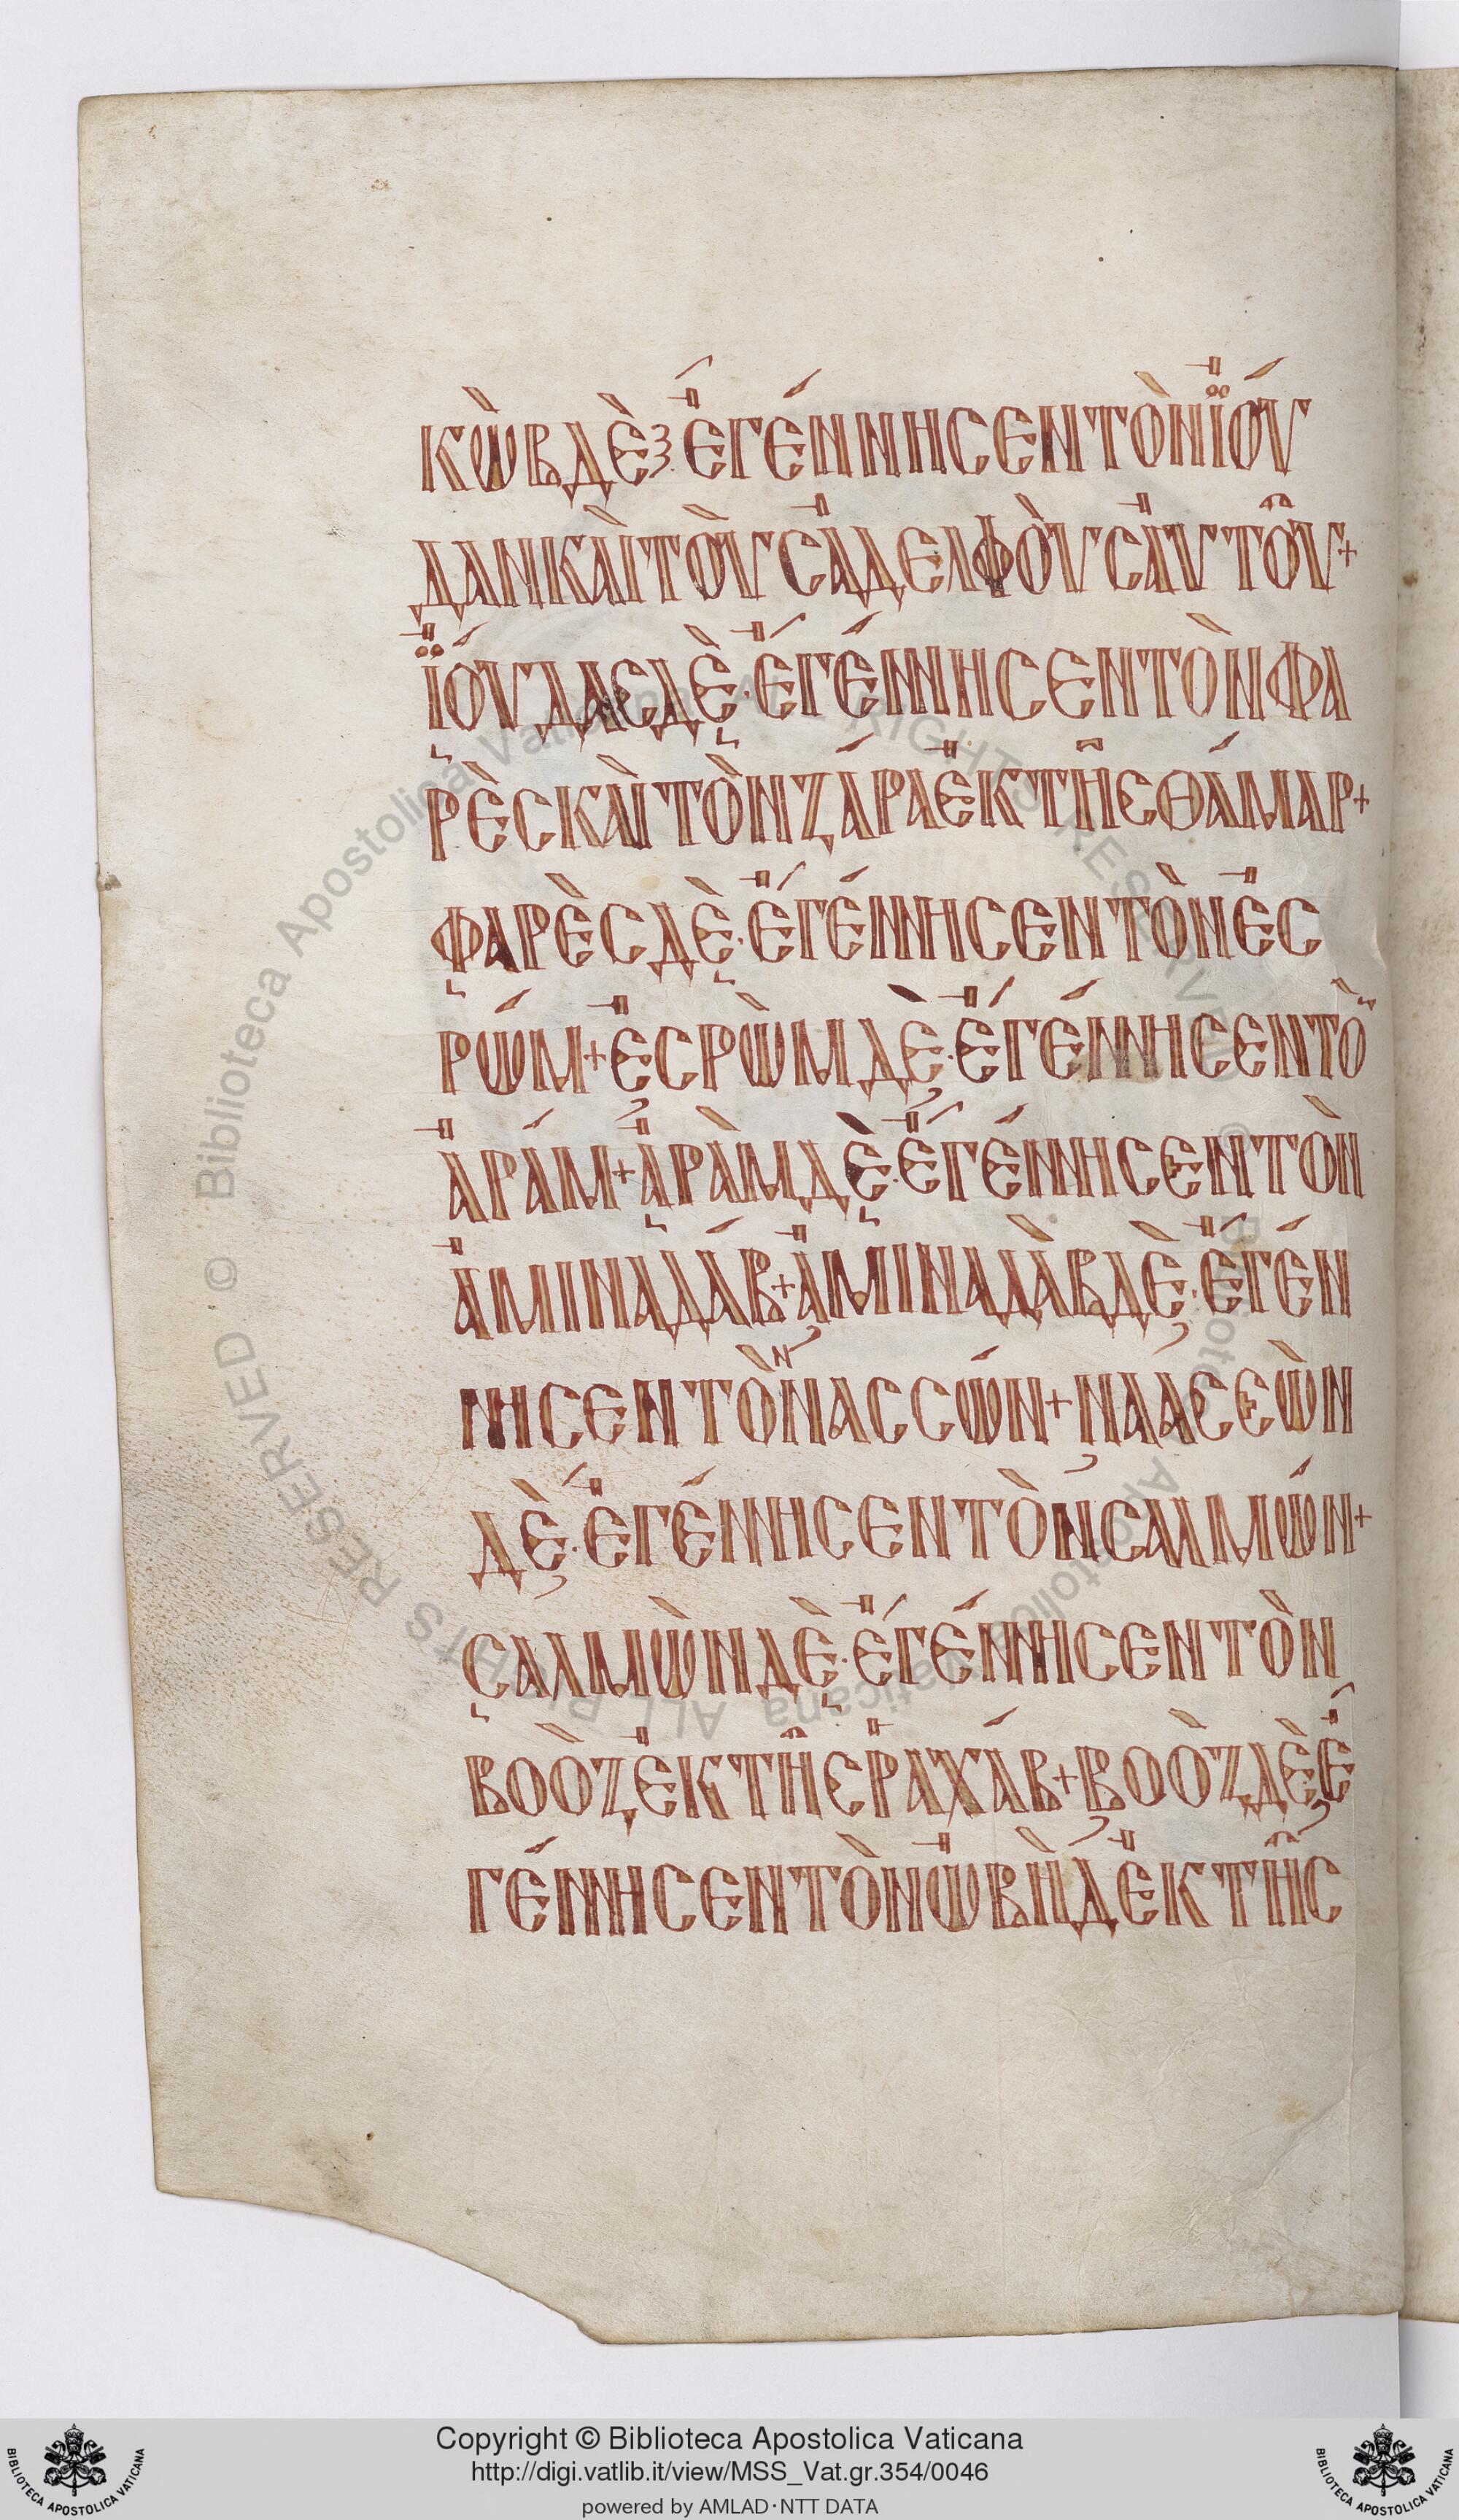 ΚῺΒΔῈ ἘΓΈΝΝΗϹΕΝΤῸΝΪ̓ΟΎ
ΔΑΝΚΑῚΤΟῪϹἈΔΕΛΦΟῪϹἈΥΤΟῦ+
Ϊ̓ΟΎΔΑϹΔῈ·ἘΓΈΝΝΗϹΕΝΤῸΝΦΑ
ΡῈϹΚΑῚΤῸΝΖΆΡΑἘΚΤΗ͂ϹΘΆΜΑΡ+
ΦΑΡῈϹΔῈ·ἘΓΈΝΝΗϹΕΝΤῸΝἘϹ
ΡΏΜ+ἘϹΡῺΜΔῈ·ἘΓΈΝΝΗϹΕΝΤῸ
ἈΡΆΜ+ἈΡᾺΜΔῈ·ἘΓΈΝΝΗϹΕΝΤῸΝ
ἈΜΙΝΑΔΆΒ+ἈΜΙΝΑΔᾺΒΔῈ·ἘΓΈΝ
ΝΗϹΕΝΤῸΝΝΑϹϹΏΝ+ΝΑΑϹϹῺΝ
ΔῈ·ἘΓΈΝΝΗϹΕΝΤῸΝϹΑΛΜΏΝ+
ϹΑΛΜῺΝΔῈ·ἘΓΈΝΝΗϹΕΝΤῸΝ
ΒΟῸΖἘΚΤΗ͂ϹῬΑΧΆΒ+ΒΟῸΖΔῈἘ
ΓΈΝΝΗϹΕΝΤῸΝὨΒῊΔἘΚΤΗ͂Ϲ
Biblioteca Apostolica Vaticana ALL RIGHTS RESERVED ©
Copyright © Biblioteca Apostolica Vaticana
http://digi.vatlib.it/view/MSS_Vat.gr.354/0046
powered by AMLAD·NTT DATA
BIBLIOTECA APOSTOLICA VATICANA
BIBLIOTECA APOSTOLICA VATICANA